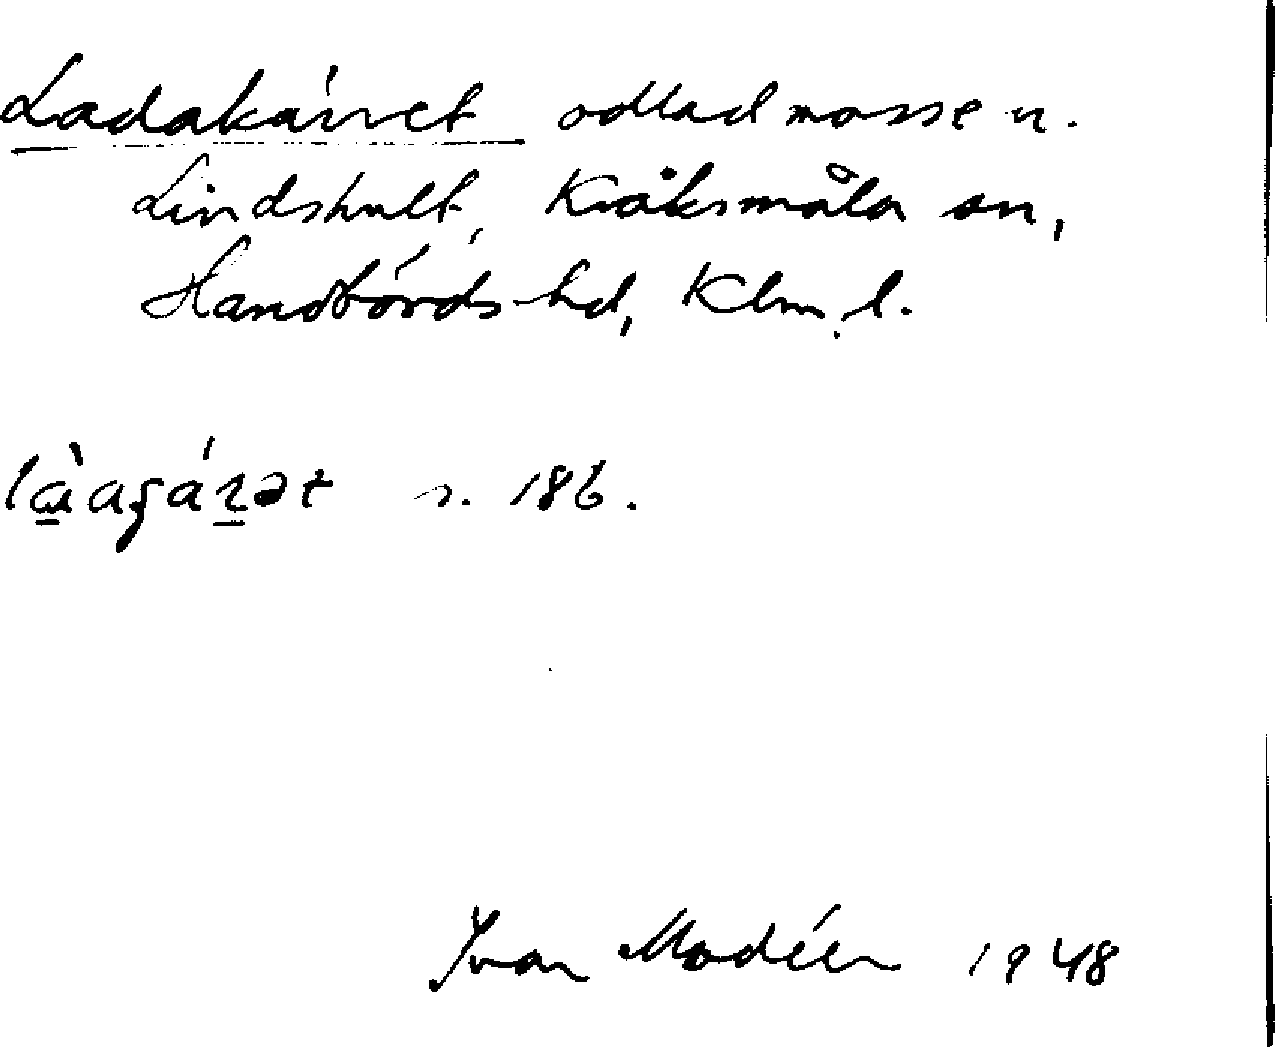 Ladakärret odlad mosse u.
Lindshult, Kråksmåla sn,
Handbörds hd, Klm. l.
s. 186.
Ivar Modéer 1948